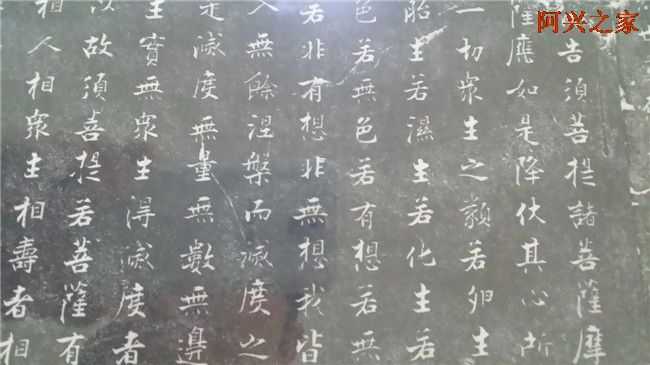 阿兴之家
告須菩提諸菩薩摩
薩應如是降伏其心所
一切衆生之類若卵生
胎生若濕生若化生若
色若無色若有想若無
若非有想非無想我皆
入無餘涅槃而滅度之
是滅度無量無數無邊
生實無衆生得滅度者
以故須菩提若菩薩有
相人相衆生相壽者相